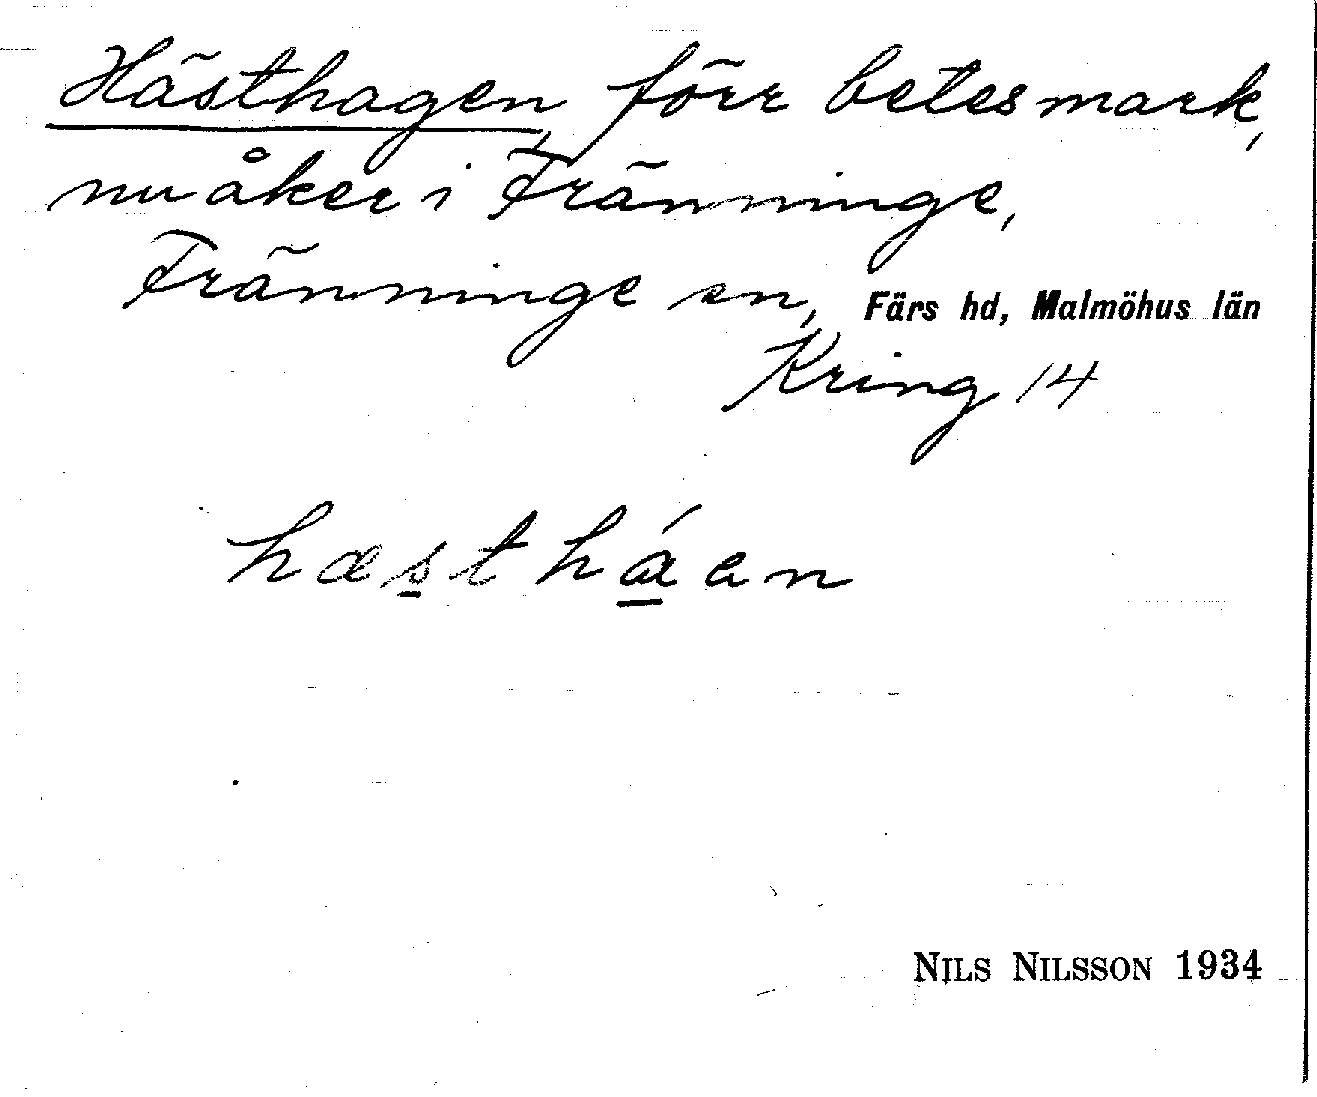 Hästhagen, förr betesmark,
nu åker i Tränninge,
Fränninge sn, Färs hd, Malmöhus län
Kring 14
hæstháen
NILS NILSSON 1934